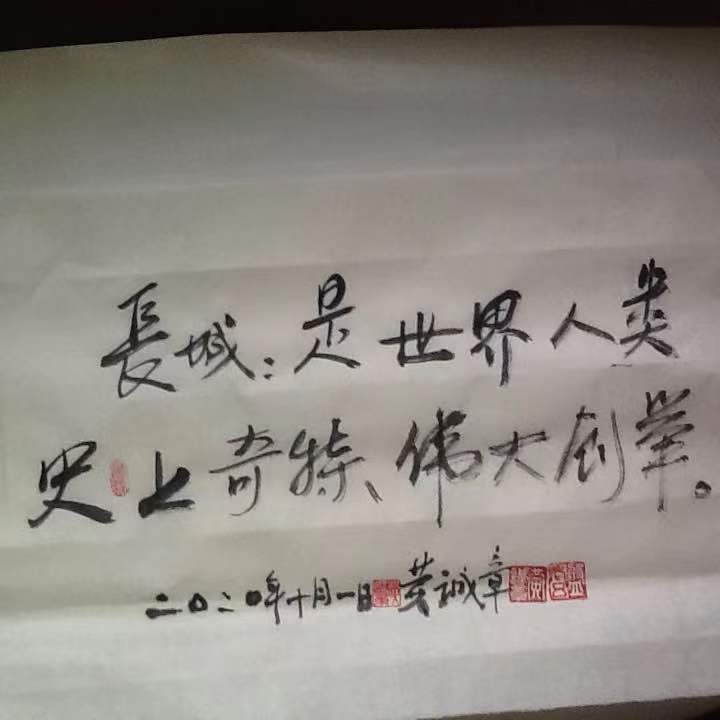 長城：是世界人类
史上奇特、伟大创举。
二〇二〇年十月一日 黄诚章